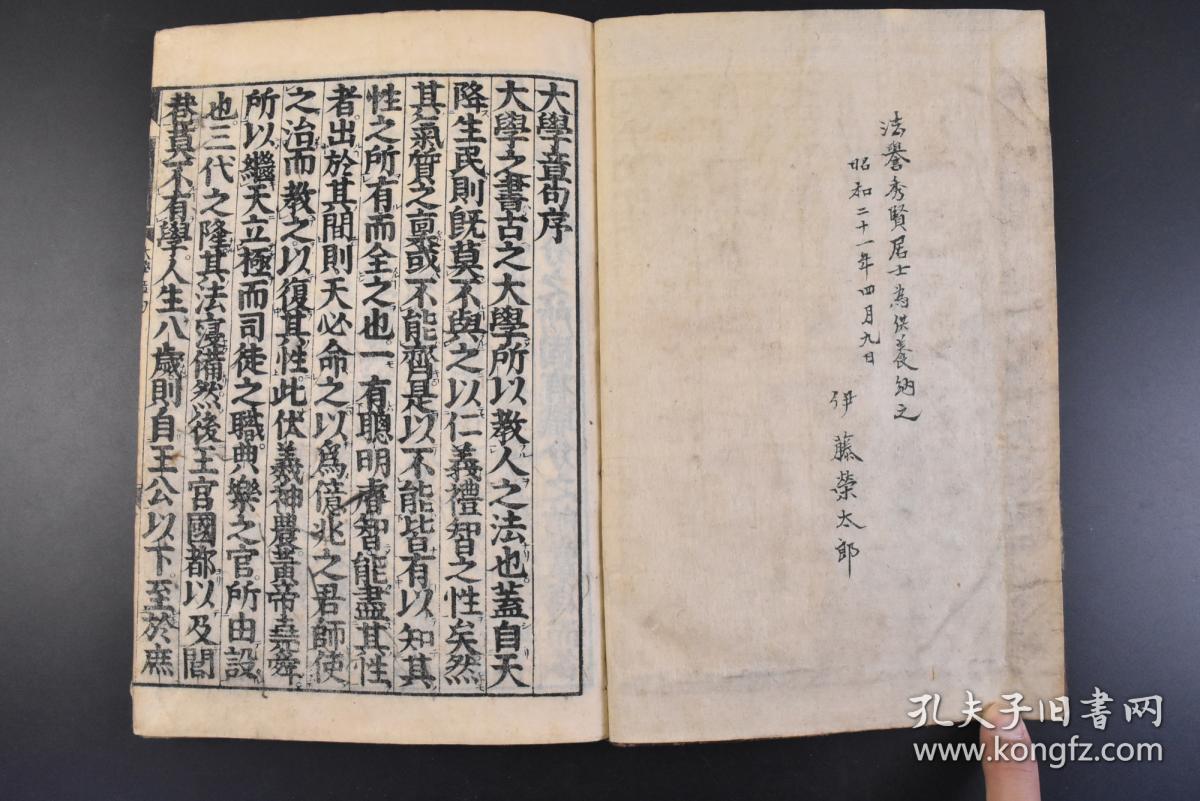 法譽秀賢居士為供養納之
昭和二十一年四月九日
伊藤榮太郎
大學章句序
大學之書古之大學所以教人之法也蓋自天
降生民則既莫不與之以仁義禮智之性矣然
其氣質之稟或不能齊是以不能皆有以知其
性之所有而全之也一有聰明睿智能盡其性
者出於其間則天必命之以爲億兆之君師使
之治而教之以復其性此伏羲神農黃帝堯舜
所以繼天立極而司徒之職典樂之官所由設
也三代之隆其法寖備然後王宮國都以及閭
巷莫不有學人生八歲則自王公以下至於庶
孔夫子旧书网
www.kongfz.com